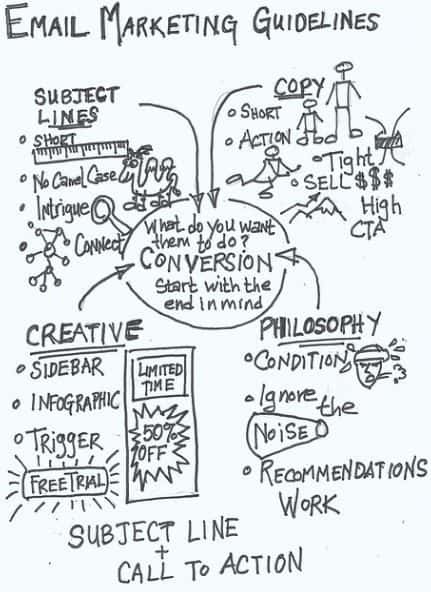 EMAIL MARKETING GUIDELINES
SUBJECT
LINES
SHORT
No Camel Case
Intrigue
CONNECT
COPY
SHORT
ACTION
Tight
SELL $$$
High
CTA
What do you want
them to do?
CONVERSION
Start with the
end in mind
CREATIVE
SIDEBAR
INFOGRAPHIC
TRIGGER
FREE TRIAL
LIMITED
TIME
50%
OFF
PHILOSOPHY
CONDITION
Ignore the
NOISE
RECOMMENDATIONS
WORK
SUBJECT LINE
+
CALL TO ACTION